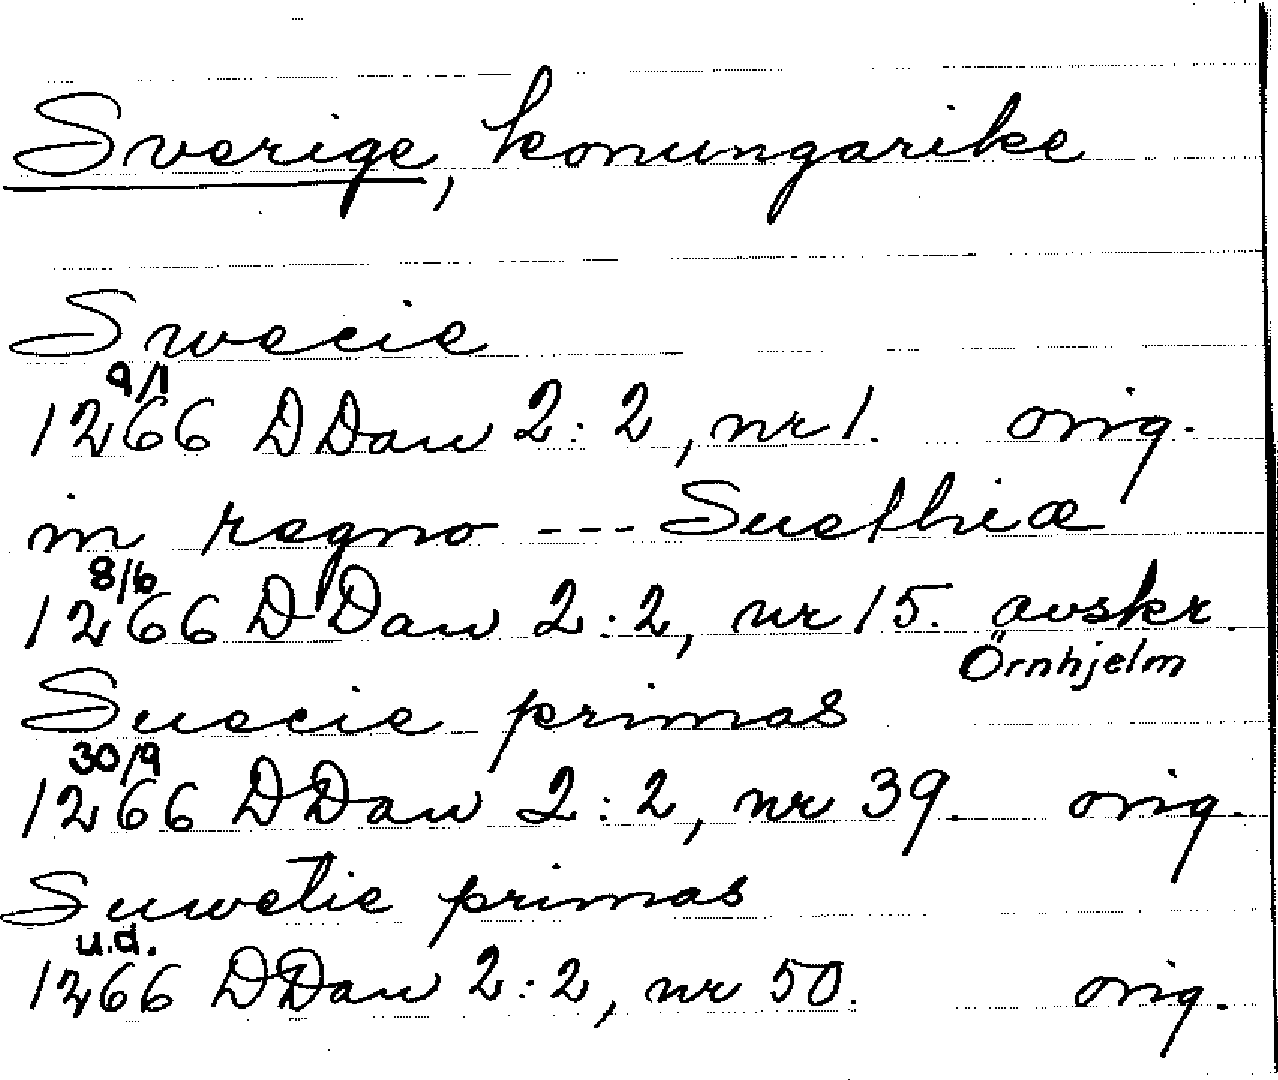 Sverige, konungarike
Swecie
9/1
1266 DDan 2:2, nr 1. orig.
in regno --- Suethiæ
8/6
1266 DDan 2:2, nr 15. avskr.
Örnhjelm
Suecie primas
30/9
1266 DDan 2:2, nr 39. orig.
Suwetie primas
u.d.
1266 DDan 2:2, nr 50. orig.